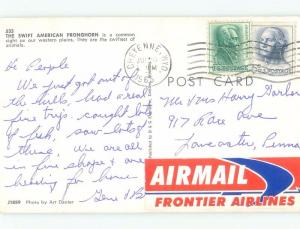 533
THE SWIFT AMERICAN PRONGHORN is a common
sight on our western plains. They are the swiftest of
animals.
CHEYENNE, WYO.
PM
196
POST CARD
Dr People
We just got out of
the hills, had a real
fine trip, caught lots
of fish, saw lots of
things. We are all
in fine shape & are
heading for home.
Gene
Mr & Mrs Harry
917 Race Ave
Lancaster, Penna
AIRMAIL
FRONTIER AIRLINES
Photo by Art Dexter